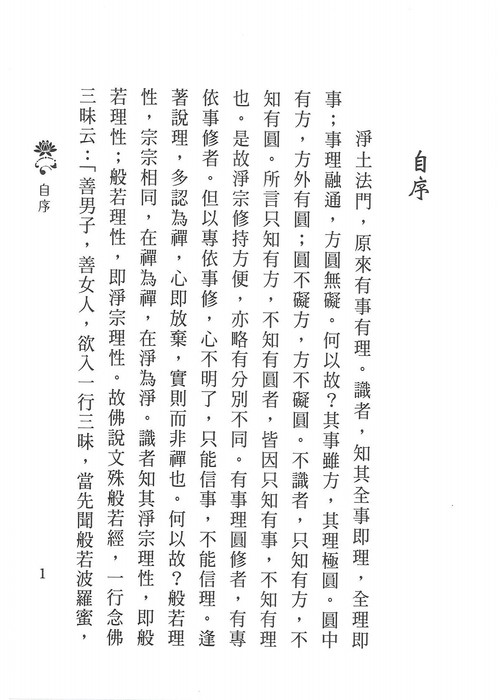 自序
淨土法門，原來有事有理。識者，知其全事即理，全理即
事；事理融通，方圓無礙。何以故？其事雖方，其理極圓。圓中
有方，方外有圓；圓不礙方，方不礙圓。不識者，只知有方，不
知有圓。所言只知有方，不知有圓者，皆因只知有事，不知有理
也。是故淨宗修持方便，亦略有分別不同。有事理圓修者，有專
依事修者。但以專依事修，心不明了，只能信事，不能信理。逢
著說理，多認為禪，心即放棄，實則而非禪也。何以故？般若理
性，宗宗相同，在禪為禪，在淨為淨。識者知其淨宗理性，即般
若理性；般若理性，即淨宗理性。故佛說文殊般若經，一行念佛
三昧云：「善男子，善女人，欲入一行三昧，當先聞般若波羅蜜，
自序
1